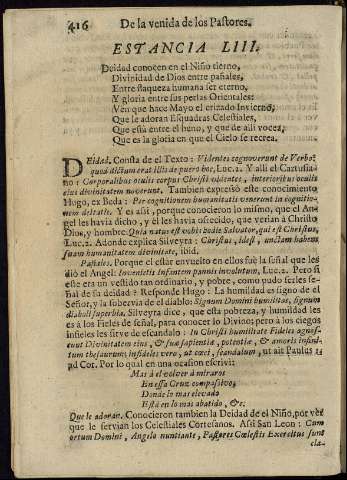 416 De la venida de los Pastores.
ESTANCIA LIII.
Deidad conocen en el Niño tierno,
Divinidad de Dios entre pañales,
Entre flaqueza humana ser eterno,
Y gloria entre sus perlas Orientales:
Ven que hace Mayo el erizado Invierno,
Que le adoran Esquadras Celestiales,
Que està entre el heno, y que de alli vocea,
Que es la gloria en que el Cielo se recrea.
DEidad. Consta de el Texto: Videntes cognoverunt de Verbo:
quod dictum erat illis de puero hoc, Luc. 2. Y alli el Cartusia-
no: Corporalibus oculis corpus Christi videntes, interioribus oculis
eius divinitatem noverunt. Tambien expressò este conocimiento
Hugo, ex Beda: Per cognitionem humanitatis venerunt in cognitio-
nem deitatis. Y es assi, porque conocieron lo mismo, que el An-
gel les havia dicho, y èl les havia ofrecido, que verian à Christo
Dios, y hombre. Quia natus est vobis hodie Salvator, qui est Christus,
Luc. 2. Adonde explica Silveyra: Christus, idest, unctam habens
suam humanitatem divinitate, ibid.
Pañales. Porque el estàr envuelto en ellos fue la señal que les
diò el Angel: Invenietis Infantem pannis involutum, Luc. 2. Pero si
este era un vestido tan ordinario, y pobre, como pudo serles se-
ñal de su deidad? Responde Hugo: La humildad es signo de el
Señor, y la sobervia de el diablo: Signum Domini humilitas, signum
diaboli superbia. Silveyra dice, que esta pobreza, y humildad les
es à los Fieles de señal, para conocer lo Divino; pero à los ciegos
infieles les sirve de escandalo: In Christi humilitate Fideles agnos-
cunt Divinitatem eius, & suæ sapientiæ, potentiæ, & amoris infini-
tum thesaurum; infideles vero, ut cæci, scandalum, ut ait Paulus 1.
ad Cor. Por lo qual en una ocasion escrivi:
Mas à el volver à miraros
En essa Cruz compassivo,
Donde lo mas elevado
Està en lo mas abatido, &c.
Que le adoran. Conocieron tambien la Deidad de el Niño, por vèr
que le servian los Celestiales Cortesanos. Assi San Leon: Cum
ortum Domini, Angelo nuntiante, Pastores Cœlestis Exercitus sunt
cla-